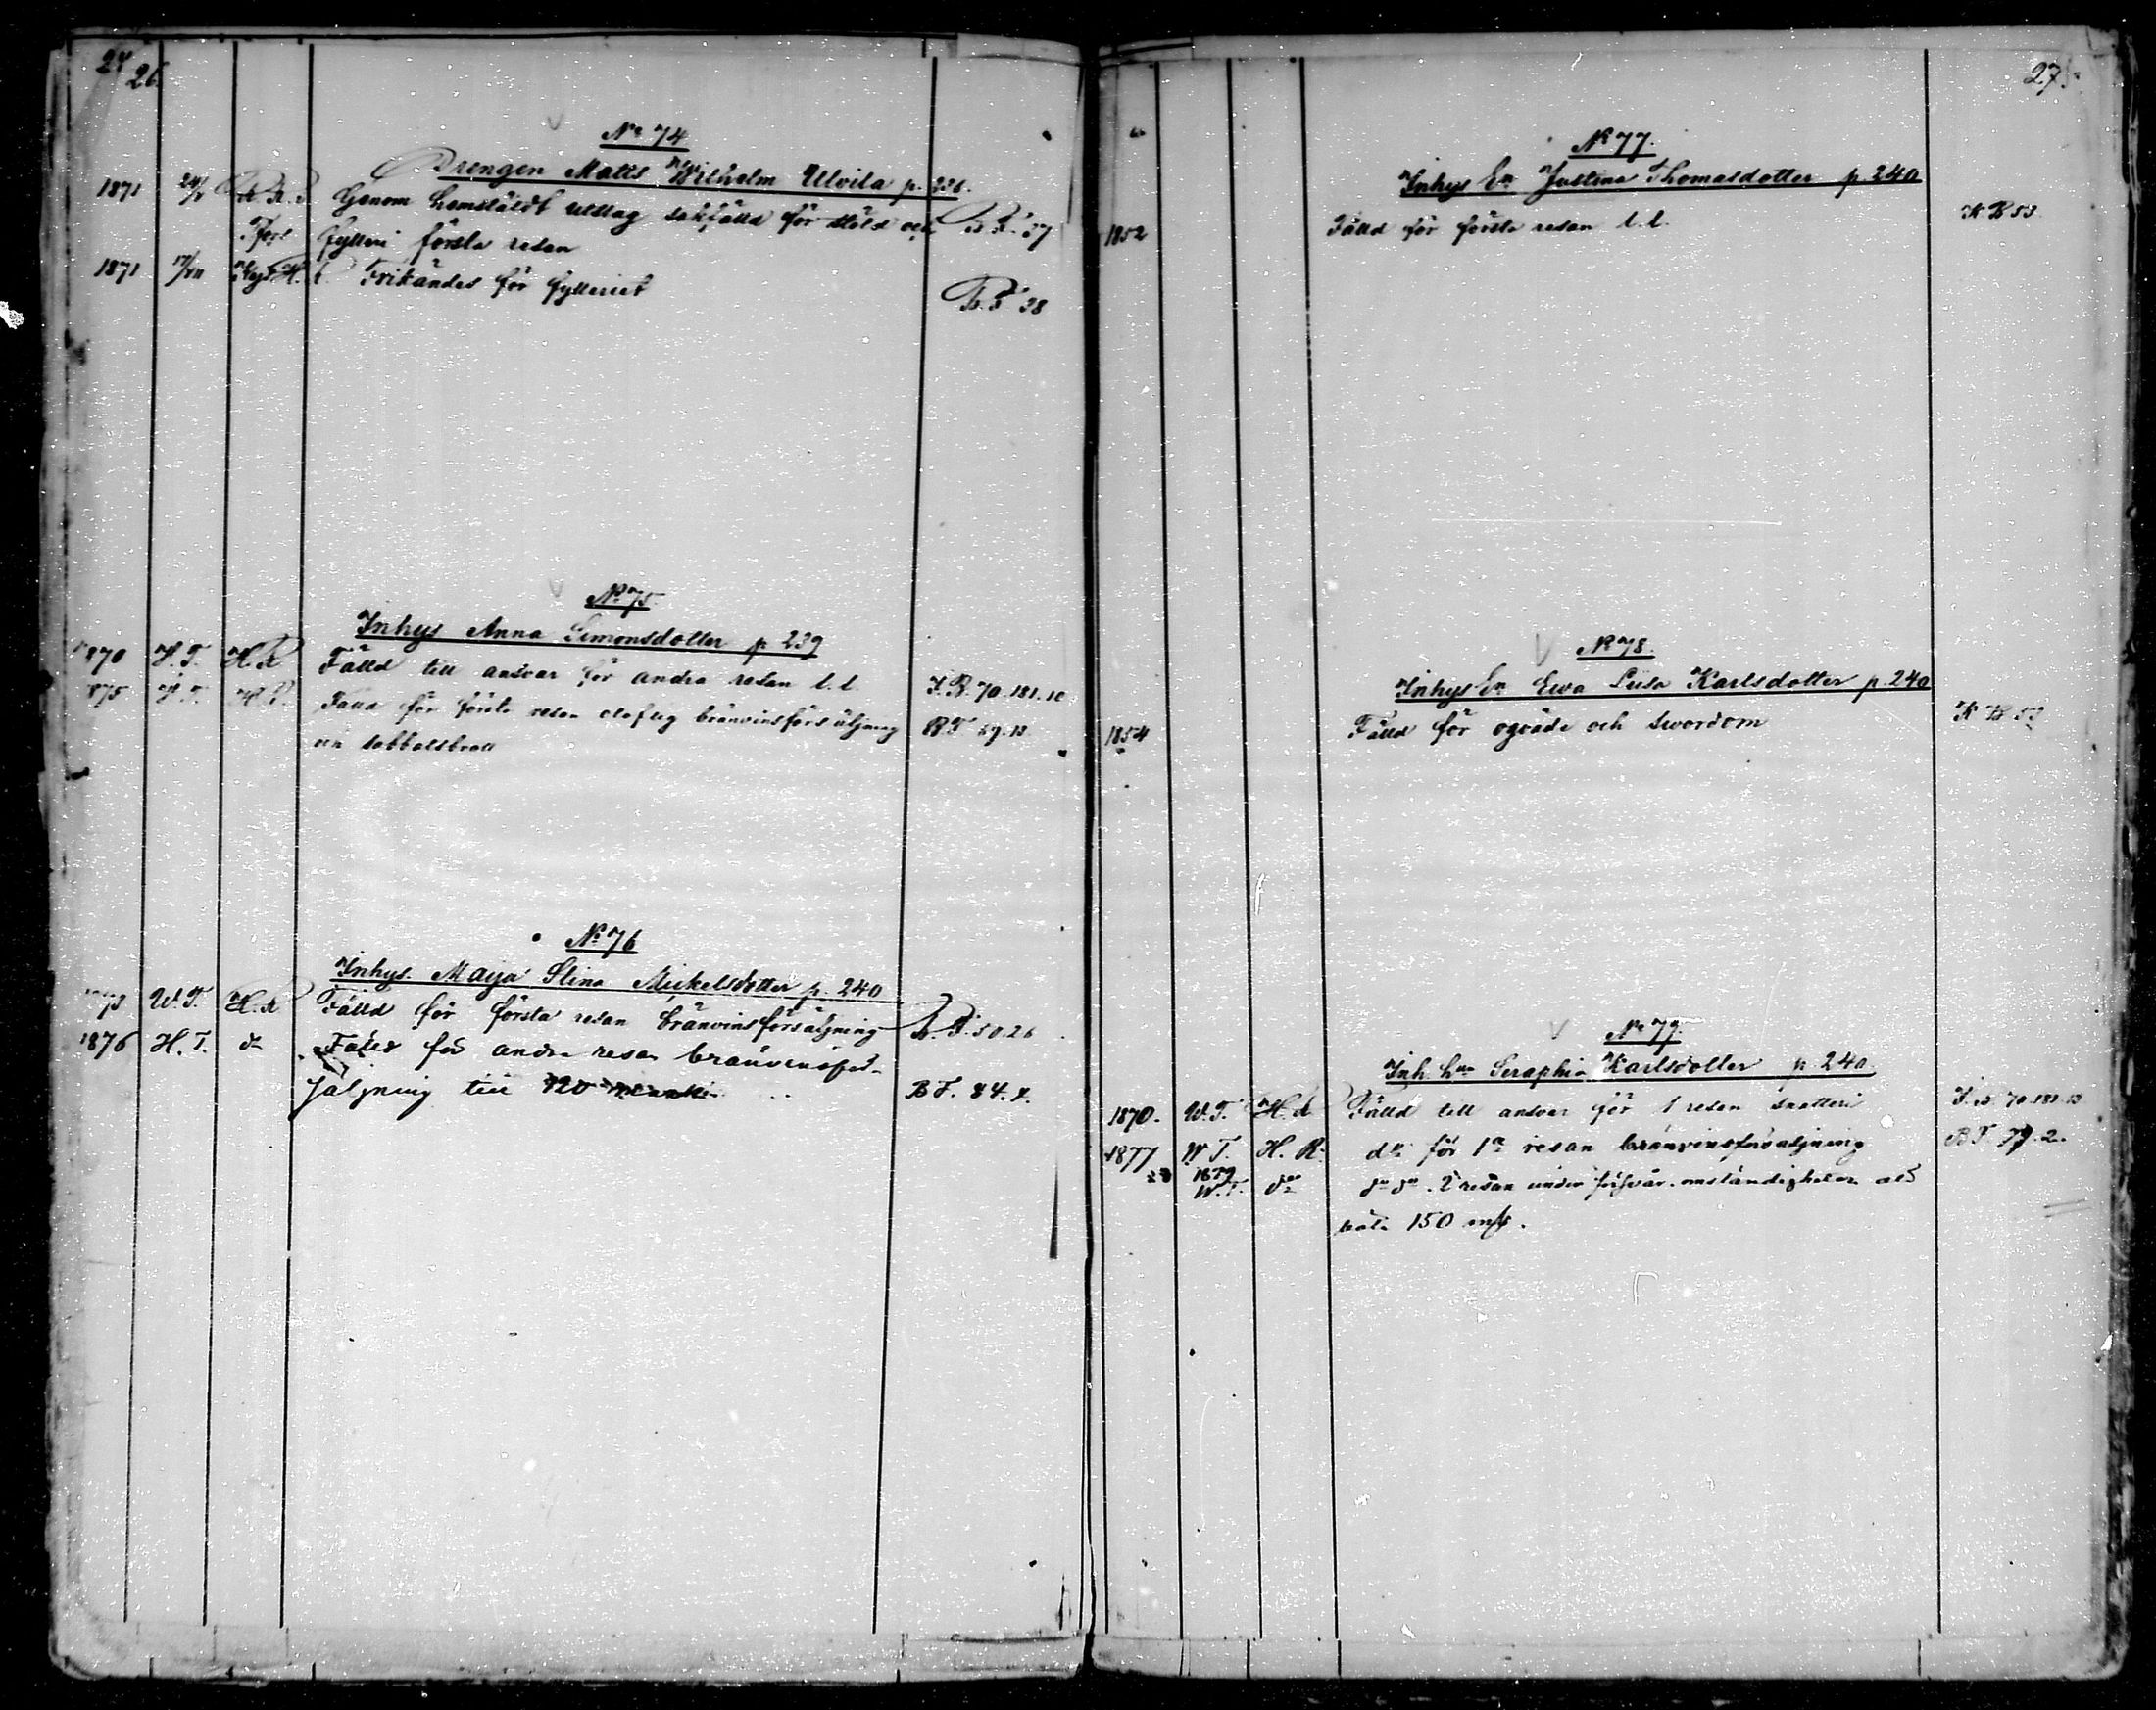 26
No 74
Drengen Matts Wilhelm Ulvila p. 236.
1871 24/ R. R. Genom hemstäldt utslag sakfälld för stöld och B. F. 37
fylleri första resan
1871 Frikändes för fylleriet B. F. 38
No 75
Inhys Anna Simonsdotter p 239
1870 H. T. H. R Fälld till ansvar för andra resan l. l. I. B. 70.181.10
1875 H. T. H. R. Fälld för första resan olaflig bränvinsförsäljning B F 69.13
och sabbatsbrott
No 76
Inhys. Maija Stina Mickelsdotter p. 240
1873 W. T. H. R Fälld för första resan bränvinsförsäljning B. F. 50.26
1876 H. T. do Fälld för andra resan bränvinsför-
säljning till 120 B F. 84.
27
No 77.
Inhys En Justina Thomasdotter p. 240
1852 Fälld för första resan l. l. K B 53
No 78.
Inhys En Ewa Lisa Karlsdotter p. 240
1854 Fälld för oqväde och swordom K B 53
No 79.
Inh. Seraphia Karlsdotter p. 240
1870. W. T. H. R Fälld till ansvar för 1 resan snatteri I. B. 70.181.13
1877 W T. H. R. do för 1a resan bränvinsförsäljning B F 79.2.
1879 W. T. do do do. 2 resan under försvår. omständigheter att
böta 150 mk.